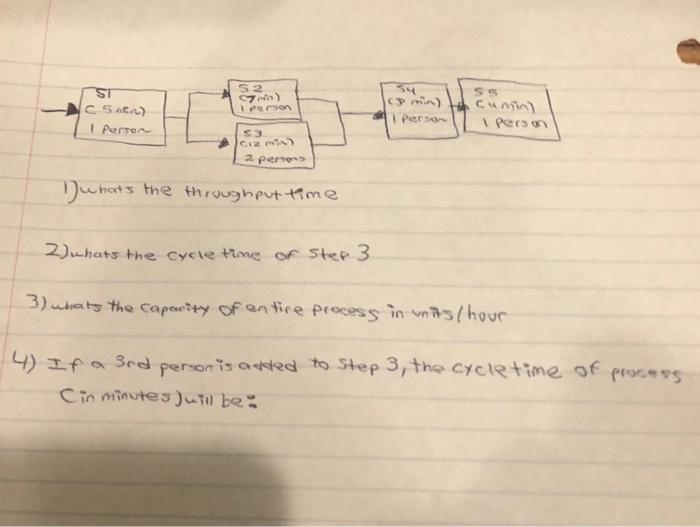 S1
(5 min)
1 Person
S2
(7 min)
1 person
S3
(12 min)
2 persons
S4
min)
1 Person
S5
(4 min)
1 person
1) whats the throughput time
2) whats the cycle time of Step 3
3) whats the capacity of entire process in units/hour
4) If a 3rd person is added to Step 3, the cycle time of process
(in minutes) will be: